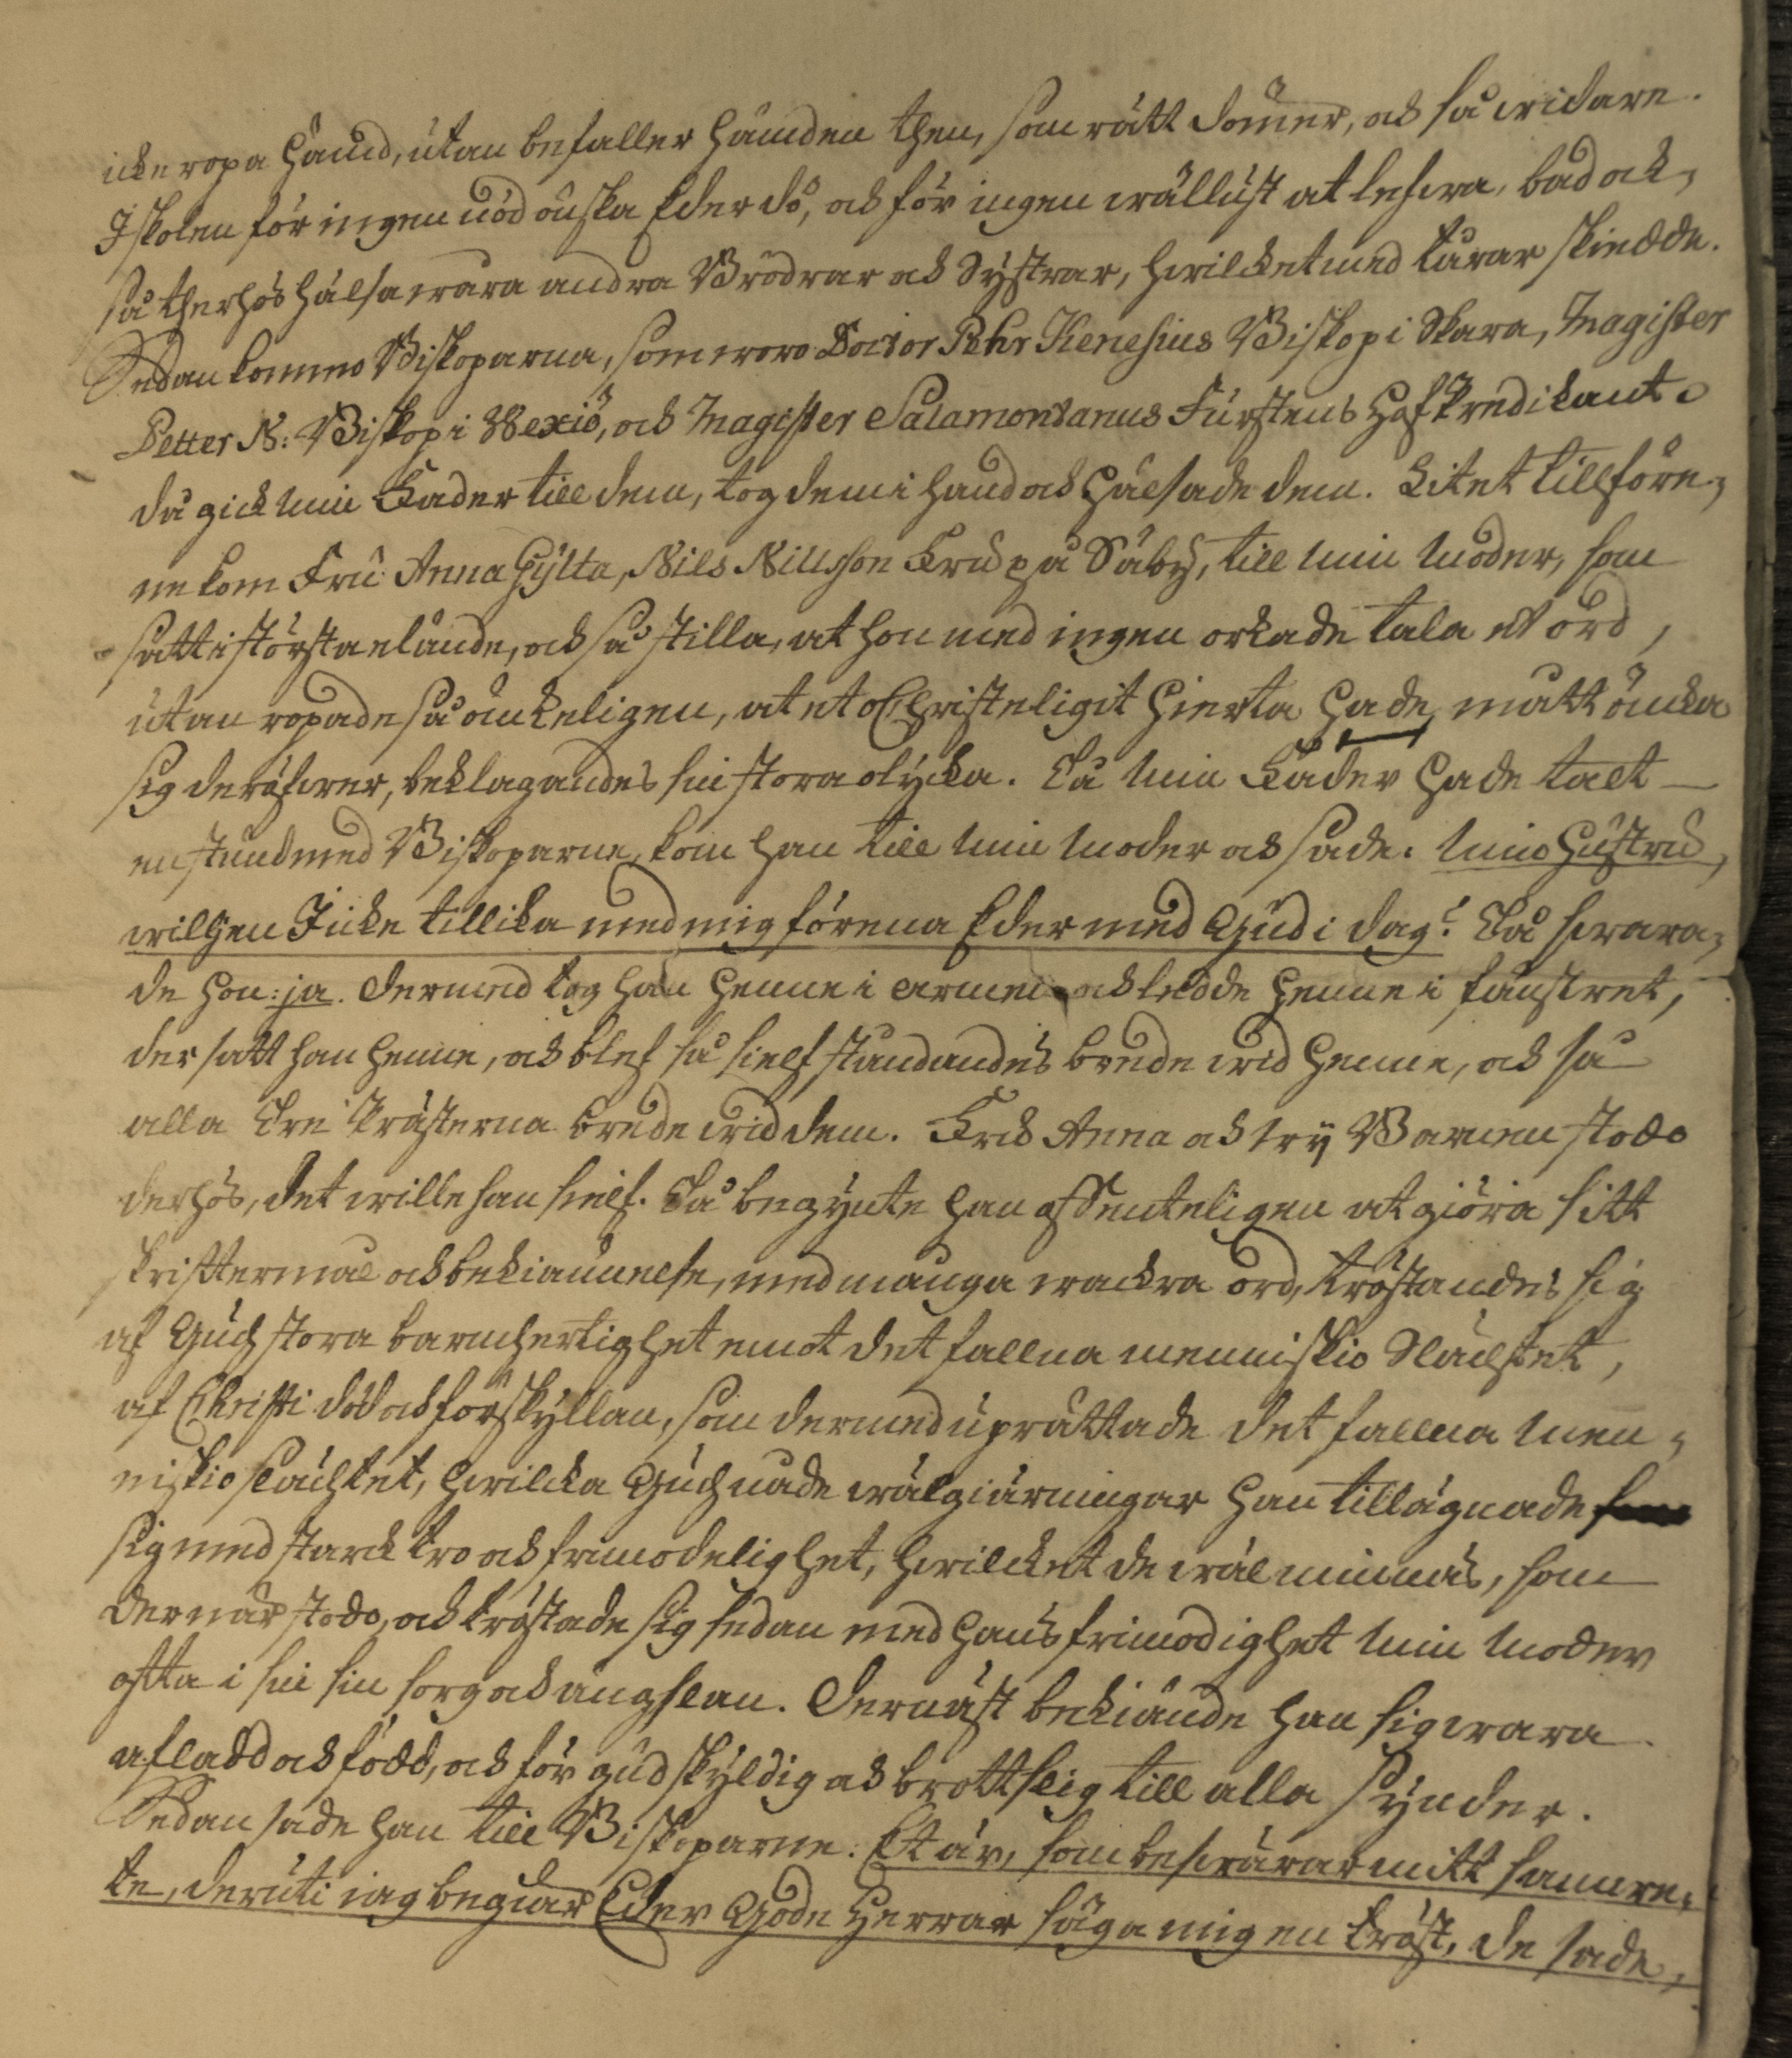 icke ropa hämd, utan befaller hämden then, som rätt dömer, och så widare.
I skolen för ingen nöd önska Eder dö, och för ingen wällust at lefwa, bad ock,
så therhos hälsa wåra andra Brödrar och Systrar, hwilcket med tårar skiedde.
Sedan kommo Biskoparna, som woro Doctor Pehr Kenesius Biskop i Skara, Magister
Petter N: Biskop i Wexiö, och Magister Salamontanus Furstens Hofpredikant.
då gick min Fader till dem, tog dem i hand och hälsade dem. Litet tillföre,
ne kom Fru Anna Gylta, Nils Nillsson Fru på Säby, till min Moder, som
satt i största elände, och så stilla, at hon med ingen orkade tala et ord,
utan ropade så ömkeligen, at et Christeligit hierta hade matt ömka
sig deröfwer, beklagandes sin stora olycka. Då min Fader hade talt
en stund med Biskoparne, kom han till min Moder och sade: Min Hustru,
wilhen I icke tillika med mig förena Eder med Gud i dag? Då swara,
de hon: ja. Dermed tog han henne i armen och ledde henne i fönstret,
der satt han henne, och blef så sielf ståndandes brede wid henne, och så
alla tre Prästerna brede wid dem. Fru Anna och try Barnen stodo
derhos, det wille han sielf. Då begynte han offenteligen at giöra sitt
skriftermål och bekiännelse, med många wackra ord, tröstandes sig
af Guds stora barmhertighet emot det fallna menniskio Slächtet,
af Christi död och förskyllan, som dermed uprättade det fallna men,
niskio slächtet, hwilcka Guds nåde wälgiärningar han tillägnade
sig med starck tro och frimodelighet, hwilcket de wäl minnas, som
dernär stodo, och tröstade sig sedan med hans frimodighet min Moder
ofta i sin sin sorg och ängslan. Dernäst bekiände han sig wara
aflad och född, och för gud skyldig och brottslig till alla synder.
Sedan sade han till Biskoparne: Et är, som beswärar mitt samwe,
te, deruti iag begiär Eder Gode Herrar säga mig en tröst, de sade,